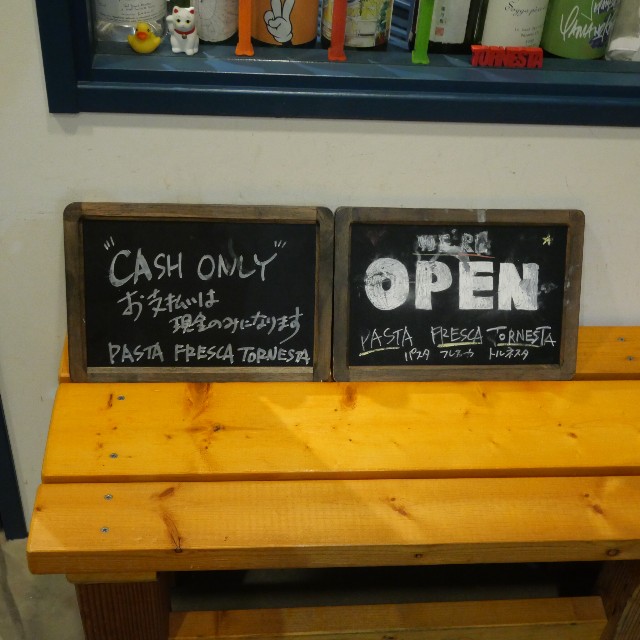 TORNESTA
"CASH ONLY"
お支払いは
現金のみになります
PASTA FRESCA TORNESTA
WE'RE
OPEN
PASTA FRESCA TORNESTA
パスタ フレスカ トルネスタ